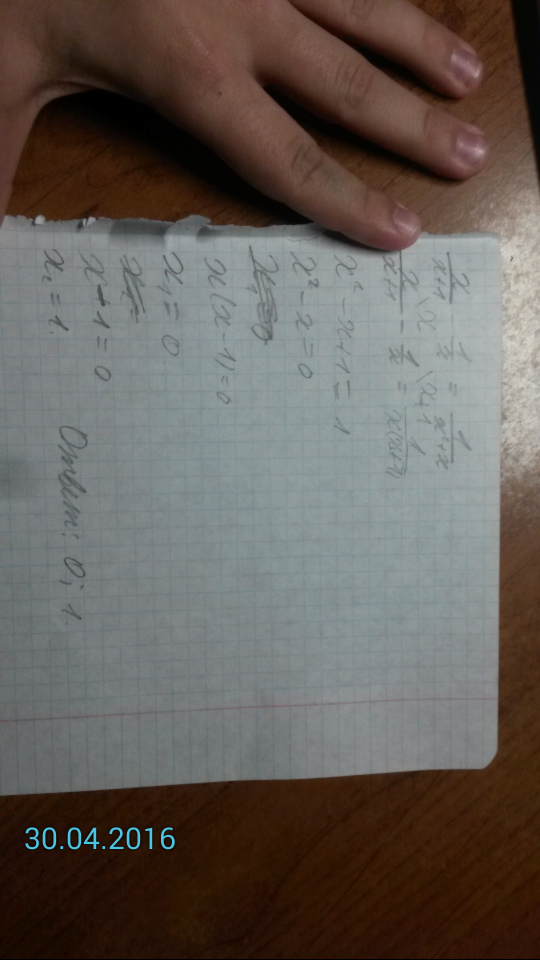 x/(x+1) \x - 1/x \x+1 = 1/(x²+x)
x/(x+1) - 1/x = 1/(x(x+1))
x² - x + 1 = 1
x² - x = 0
x(x - 1) = 0
x₁ = 0
x - 1 = 0
x₂ = 1.
Ответ: 0; 1.
30.04.2016